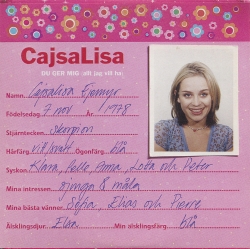 CajsaLisa
DU GER MIG allt jag vill ha
Namn: CajsaLisa Ejemyr
Födelsedag: 7 nov År: 1978
Stjärntecken: skorpion
Hårfärg: vit/svart Ögonfärg: blå
Syskon: Klara, Pelle, Anna, Lotta och Peter
Mina intressen: sjunga & måla
Mina bästa vänner: Sofia, Elias och Pierre
Älsklingsdjur: Elsa Min älsklingsfärg: blå